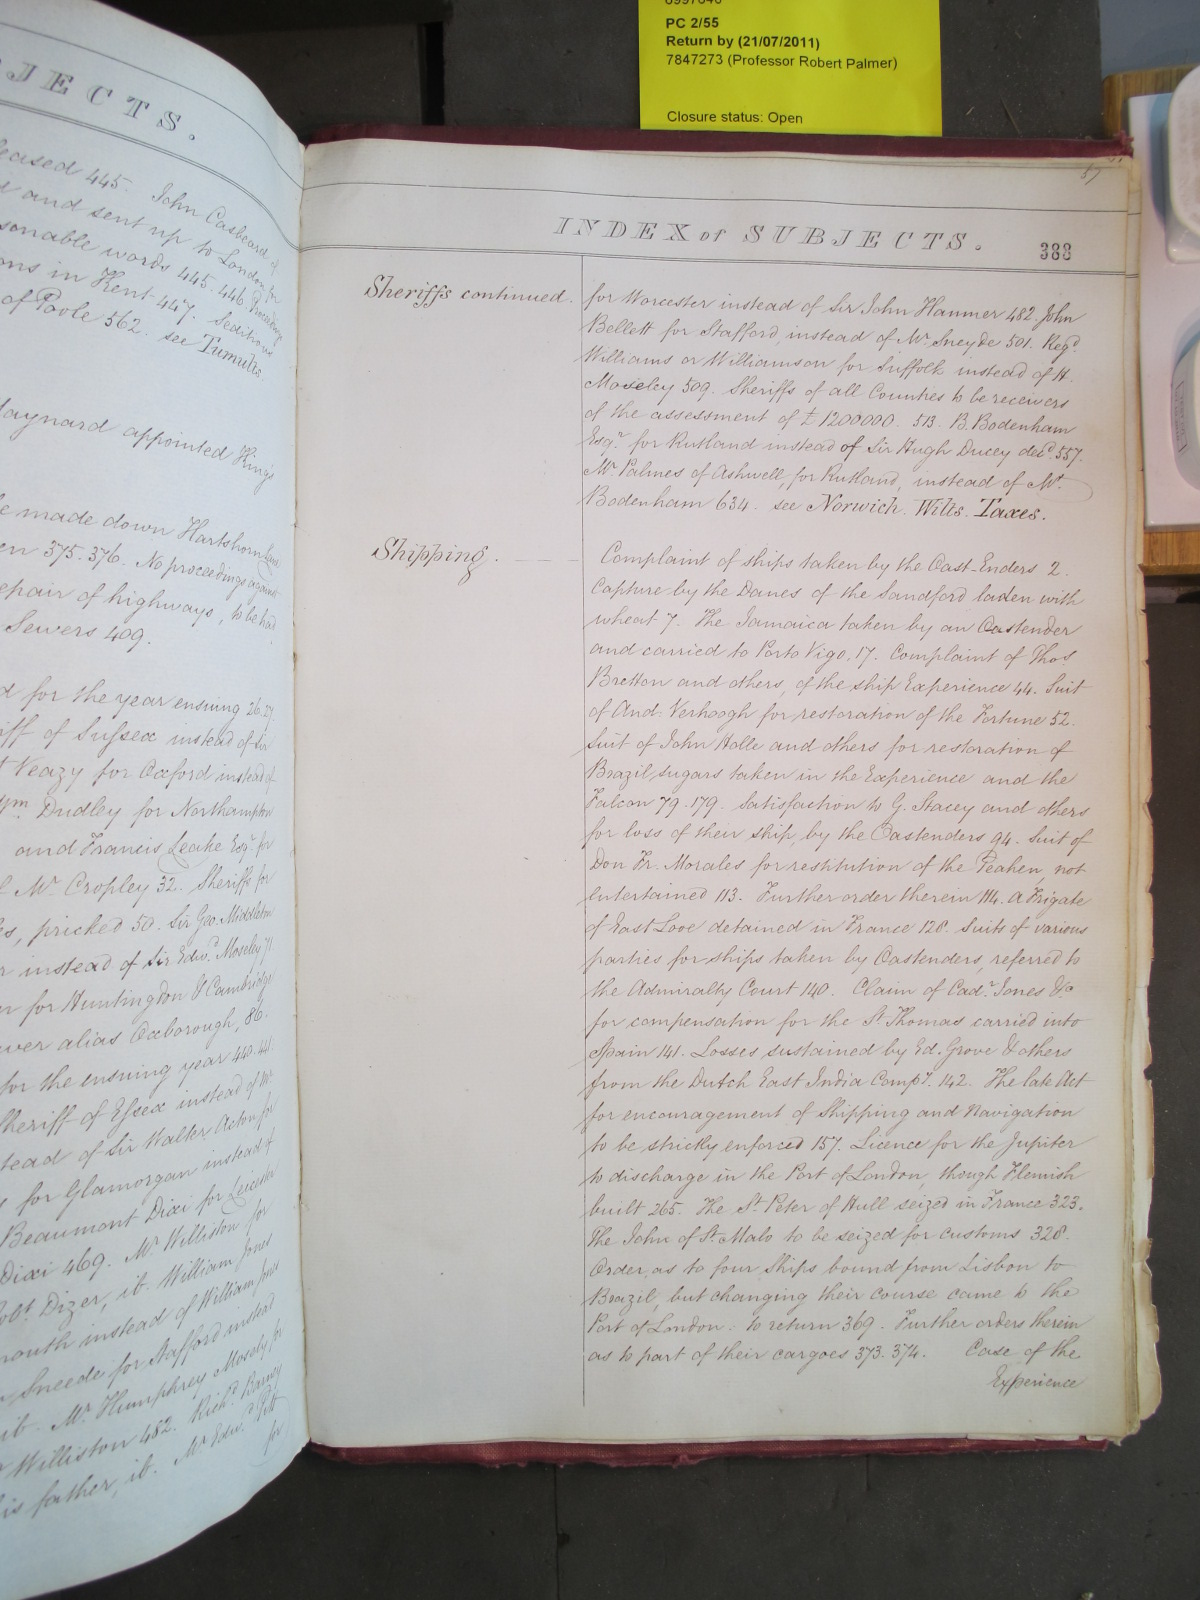 PC 2/55
Return by (21/07/2011)
7847273 (Professor Robert Palmer)
Closure status: Open
JECTS.
eased 445. John Casbeard of
and sent up to London for
sonable words 445. 446. Proceedings
ms in Kent 447. Seditions
of Poole 562. see Tumults.
Maynard appointed Kings
made down Hartshorn Lane
375. 376. No proceedings against
epair of highways, to be had
Sewers 409.
for the year ensuing 26. 27
iff of Sussex instead of Sir
Veazy for Oxford instead of
Dudley for Northampton
and Francis Leake Esqr. for
Mr. Cropley 32. Sheriffs for
pricked 50. Sir Geo. Middleton
instead of Sir Edwd. Moseley 71.
for Huntingdon & Cambridge
alias Oxborough, 86.
for the ensuing year 440. 441.
Sheriff of Essex instead of Mr.
tead of Sir Walter Acton for
for Glamorgan instead of
Beaumont Dixi for Leicester
Dixi 469. Mr. Williston for
Dizer, it. William Jones
mouth instead of William Jones
Sneede for Stafford instead
it. Mr. Humphrey Mosely for
Williston 482. Richd. Barney
is father, it. Mr. Edwd. Pitt
for
57
INDEX of SUBJECTS.
388
Sheriffs continued.
for Worcester instead of Sir John Hanmer 482. John
Bellett for Stafford, instead of Mr. Sneyde 501. Regd.
Williams or Williamson for Suffolk instead of H.
Moseley 509. Sheriffs of all Counties to be receivers
of the assessment of £1200000. 513. B. Bodenham
Esqr. for Rutland instead of Sir Hugh Ducey decd. 557.
Mr. Palmes of Ashwell, for Rutland, instead of Mr.
Bodenham 634. see Norwich. Wilts. Taxes.
Shipping.
Complaint of ships taken by the Oast-Enders 2.
Capture by the Danes of the Sandford laden with
wheat 7. The Jamaica taken by an Oastender
and carried to Porto Vigo, 17. Complaint of Thos.
Bretton and others, of the ship Experience 44. Suit
of And. Verhoogh for restoration of the Fortune 52.
Suit of John Holle and others for restoration of
Brazil sugars taken in the Experience and the
Falcon 79. 179. Satisfaction to G. Stacey and others
for loss of their ship, by the Oastenders 94. Suit of
Don Fr. Morales for restitution of the Peahen, not
entertained 113. Further order therein 114. A Frigate
of East Looe detained in France 128. Suits of various
parties for ships taken by Oastenders, referred to
the Admiralty Court 140. Claim of Cadr. Jones &c
for compensation for the St. Thomas carried into
Spain 141. Losses sustained by Ed. Grove & others
from the Dutch East India Compy. 142. The late Act
for encouragement of Shipping and Navigation
to be strictly enforced 157. Licence for the Jupiter
to discharge in the Port of London, though Flemish
built 265. The St. Peter of Hull seized in France 323.
The John of St. Malo to be seized for customs 328.
Order as to four Ships bound from Lisbon to
Brazil, but changing their course came to the
Port of London: to return 369. Further orders therein
as to part of their cargoes 373. 374. Case of the
Experience